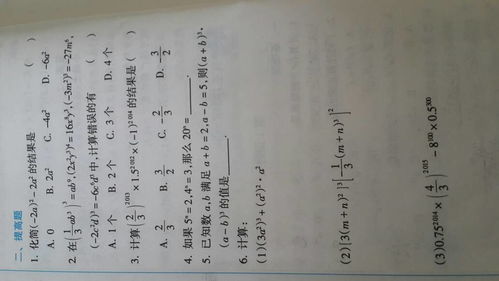 二、提高题
1. 化简(-2a)²-2a²的结果是 ( )
A. 0 B. 2a² C. -4a² D. -6a²
2. 在(1/3 ab³)³=ab⁹,(2x²y³)⁴=16x⁸y³,(-3m²)³=-27m⁶,
(-2c²d²)³=-6c⁶d⁶中,计算错误的有 ( )
A. 1个 B. 2个 C. 3个 D. 4个
3. 计算(2/3)²⁰¹³×1.5²⁰¹²×(-1)²⁰¹⁴的结果是 ( )
A. 2/3 B. 3/2 C. -2/3 D. -3/2
4. 如果5ⁿ=2,4ⁿ=3,那么20ⁿ=______.
5. 已知数a,b满足a+b=2,a-b=5,则(a+b)³·
(a-b)³的值是______.
6. 计算:
(1)(3a²)³+(a²)²·a²
(2)[3(m+n)²]³[-1/3(m+n)³]²
(3)0.75²⁰¹⁴×(4/3)²⁰¹⁵-8¹⁰⁰×0.5³⁰⁰